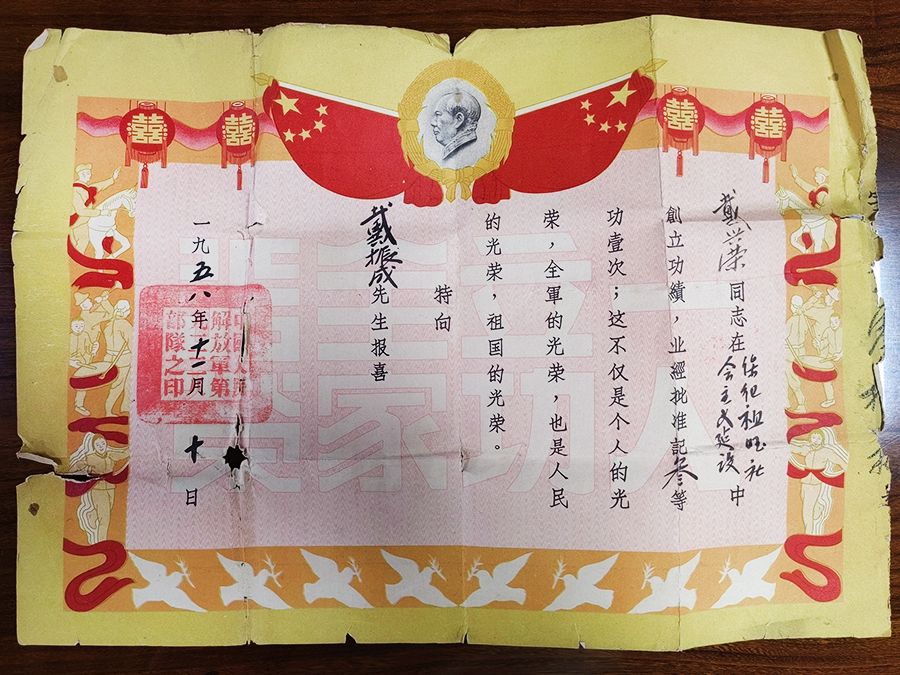 囍 囍 囍 囍
戴兴荣同志在保卫祖国社
会主义建设中
創立功績，业經批准記叁等
功壹次；这不仅是个人的光
荣，全軍的光荣，也是人民
的光荣，祖国的光荣。
特向
戴振成先生报喜
一九五八年十二月十日
中國人民
解放軍第
部隊之印
一人立功全家光荣